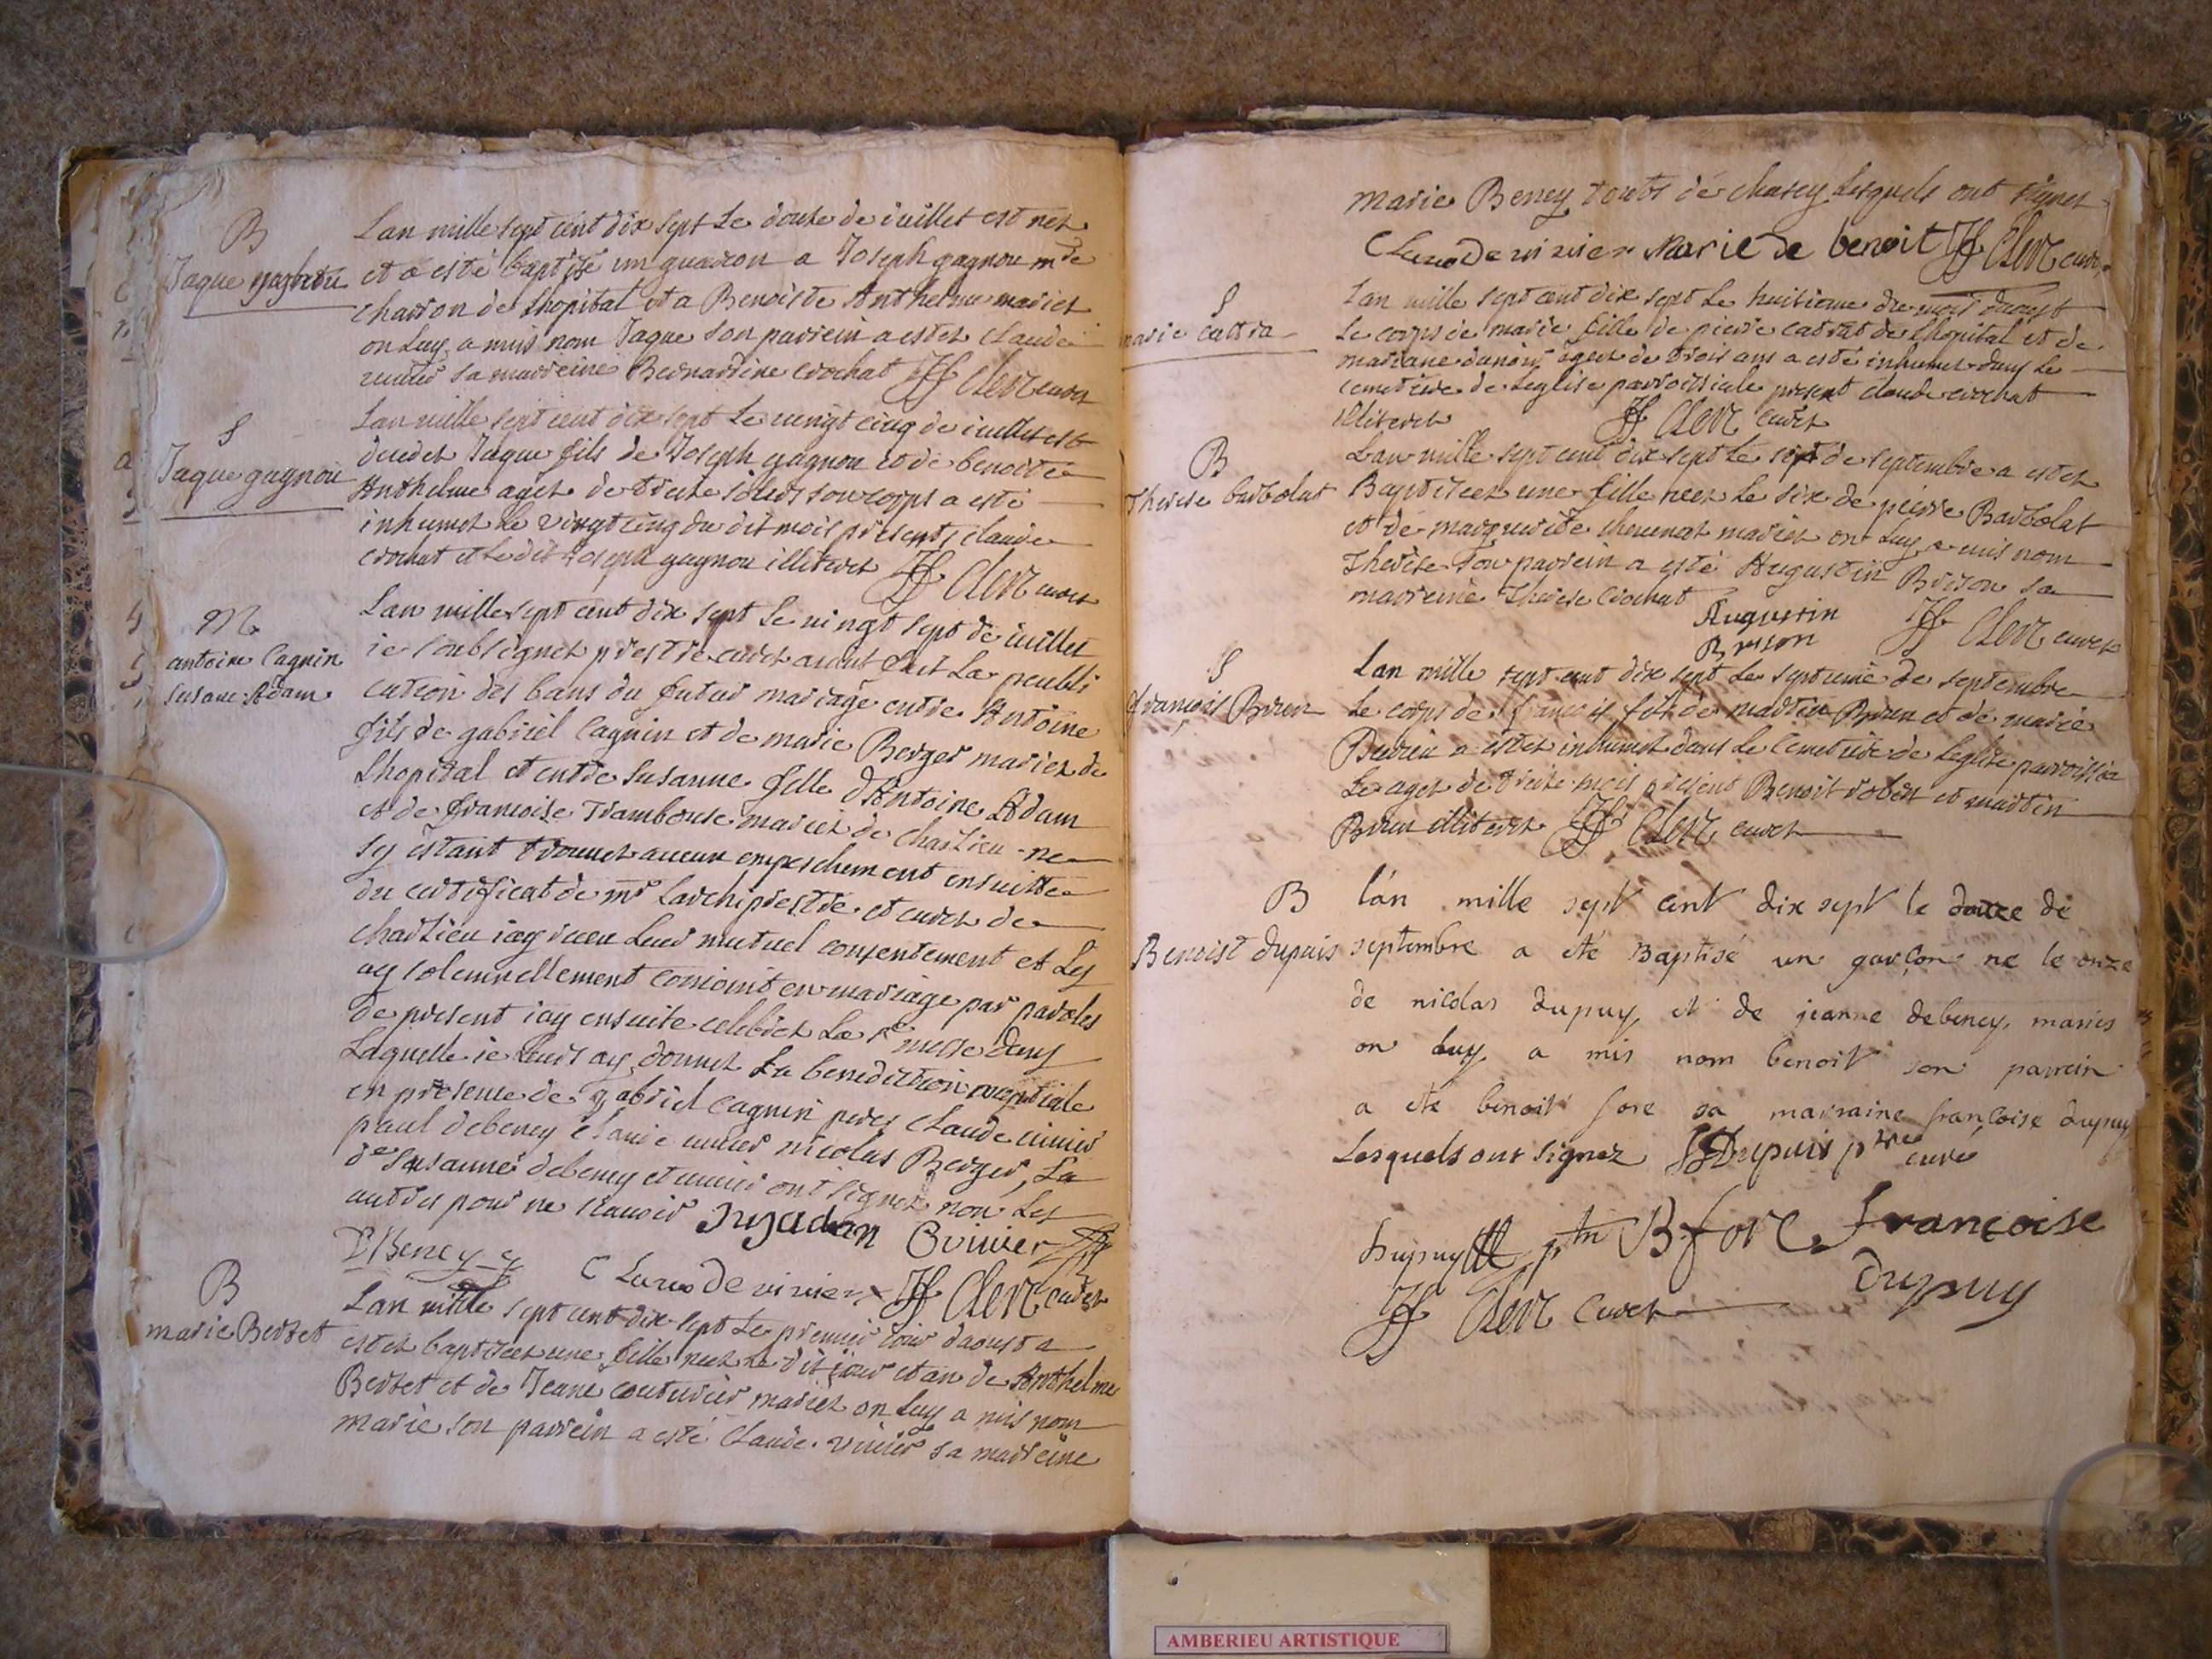 B
Jaque gagnou
Lan mille sept cent dix sept Le douse de iuillet est nez
et a esté baptisé un garcon a Joseph gagnou mde
charron de Lhopital et a Benoiste Anthelme mariez
on Luy a mis nom Jaque son parrein a estez Claude
uiuier sa marreine Bernardine crochat JF Clerc curez
S
Jaque gagnou
Lan mille sept cent dix sept Le uingt cinq de iuillet est
decedez Jaque fils de Joseph gagnou et de benoiste
Anthelme agez de treise iours son corps a esté
inhumez Le vingt cinq du dit mois presents claude
crochat et Le dit Joseph gagnou illiterez JF Clerc curez
M
antoine Cagnin
susane Adam
Lan mille sept cent dix sept Le uingt sept de iuillet
ie soubsignez prestre curez aiant fait La peubli
cation des bans du futur mariage entre Antoine
fils de gabriel Cagnin et de marie Berger mariez de
Lhopital et entre susanne fille dAntoine Adam
et de francoise Trambouse mariez de Charlieu ne
sy estant trouuez aucun empeschement ensuitte
du certificat de mr Larchiprestre et curez de
charlieu iay receu Leur mutuel consentement et Les
ay solennellement conioint en mariage par paroles
de present iay ensuite celebrez La ste messe dans
Laquelle ie Leurs ay donnez La benediction nuptiale
en presence de gabriel cagnin peres Claude uiuier
paul debeney claude uiuier nicolas Berger, La
de susanne debeney et uiuier ont signez non Les
autres pour ne scauoir Cuiuier
P Beney C Laude viuier JF Clerc curez
B
marie Bertet
Lan mille sept cent dix sept Le premier iour daoust a
estez baptisez une fille neez Le dit iour et an de Anthelme
Bertet et de Jeane couturier mariez on Luy a mis nom
marie son parrein a esté Claude viuier sa marreine
marie Beney touts de chasey Lesquels ont signez
C Laude viuier Marie de benoit JF Clerc curez
S
marie cattra
Lan mille sept cent dix sept Le huitieme du mois daoust
Le corps de marie fille de pierre catrat de Lhopital et de
mariane agez de trois ans a esté inhumez dans Le
cemetiere de Leglise parroissiale present claude crochat
illiterez JF Clerc curez
B
Therese barbolat
Lan mille sept cent dix sept Le sept de septembre a estez
Baptisez une fille neez Le six de pierre Barbolat
et de marguerite mariez on Luy a mis nom
Therese son parrein a esté Augustin Brison sa
marreine Therese Crochat Augustin
Brison JF Clerc curez
S
francois Brun
Lan mille sept cent dix sept Le septieme de septembre
Le corps de francois fils de martin Brun et de marie
a estez inhumez dans Le Cemetiere de Leglise parroissia
Le agez de treise mois present Benoit robert et martin
Brun illiterez JF Clerc curez
B
Benoist dupuis
l'an mille sept cent dix sept le douze de
septembre a eté Baptisé un garçon ne le onze
de nicolas dupuy, et de jeanne debeney, maries
on luy a mis nom benoit son parrein
a eté benoit fore sa marraine françoise dupuy
Lesquels ont signez Dupuis ptre curé
Dupuy B fore francoise
dupuy
JF Clerc Curez
AMBERIEU ARTISTIQUE